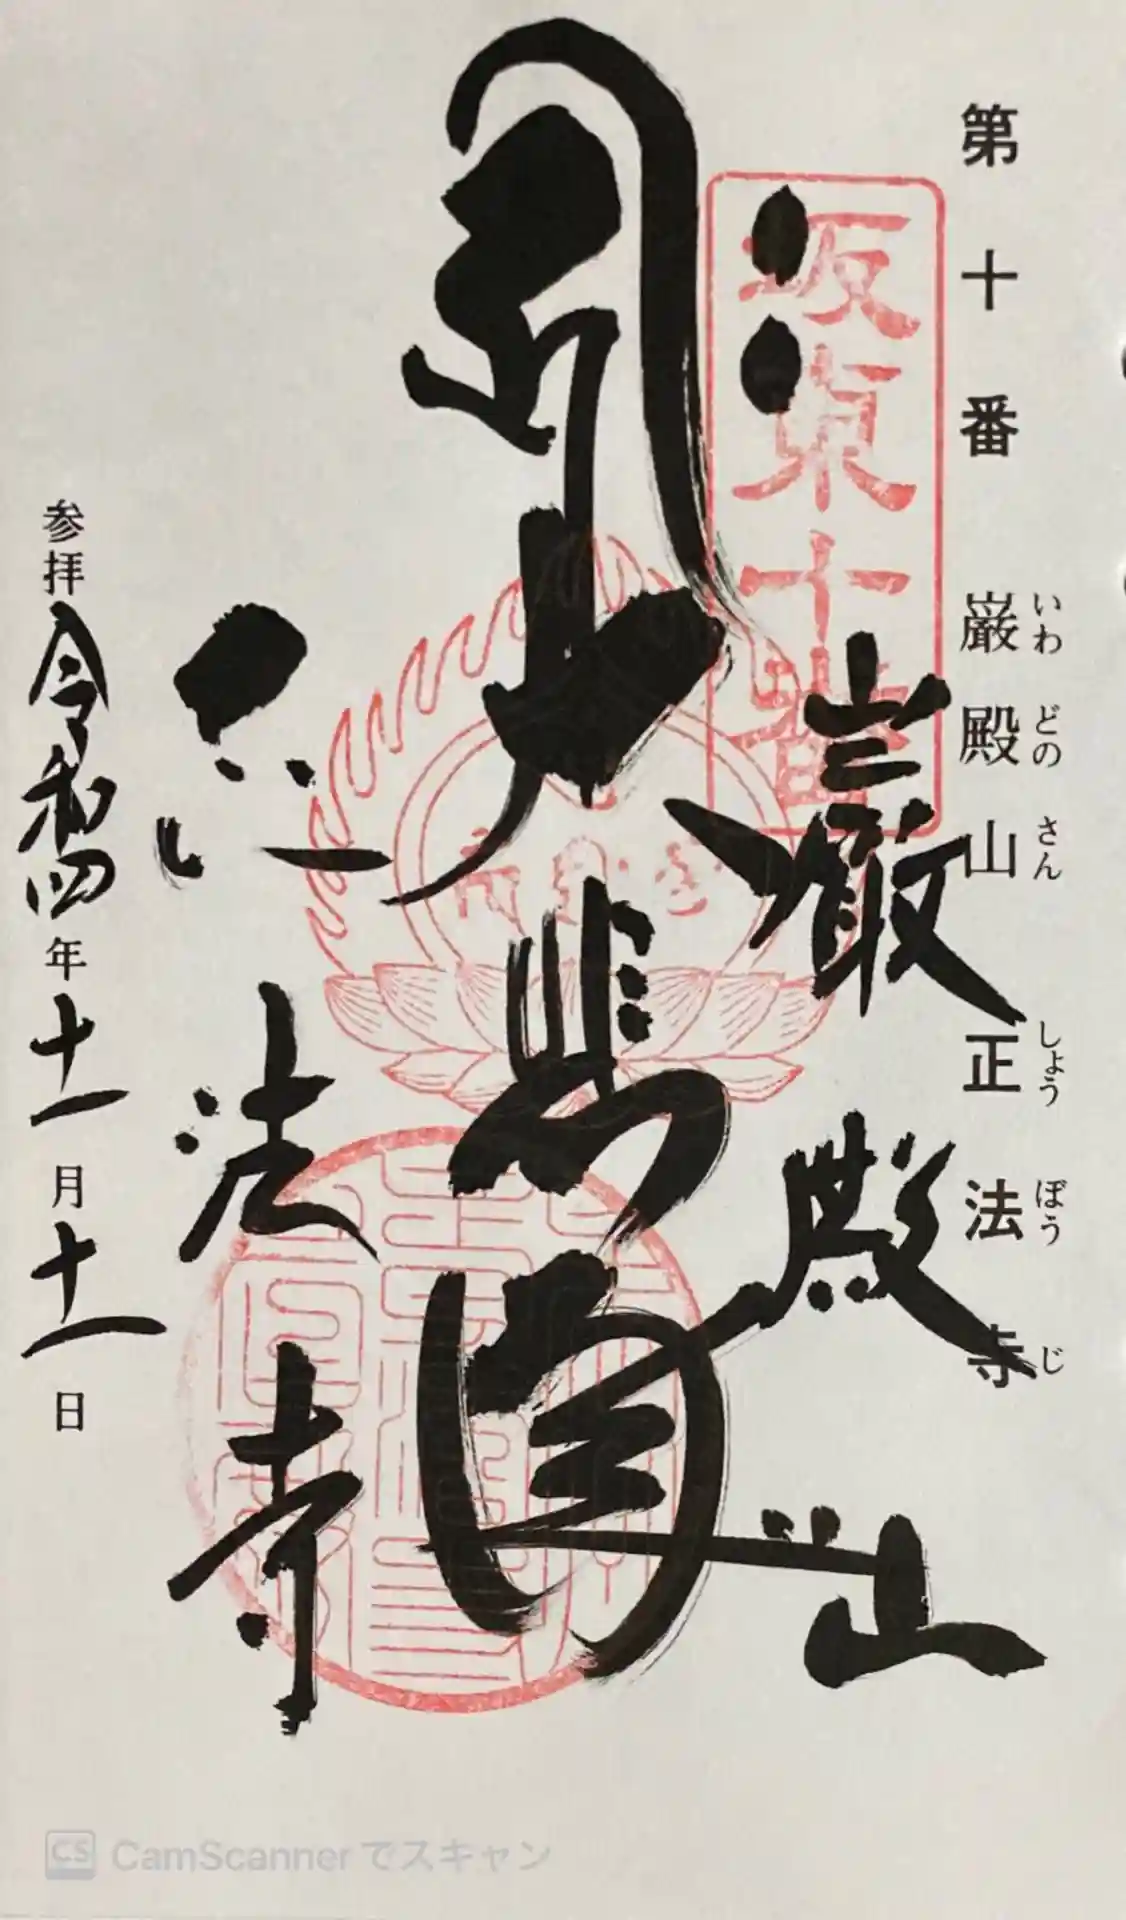 第十番 巌殿山 正法寺
いわ どの さん しょう ぼう じ
坂東十番
巌殿山
大悲閣
正法寺
参拝 令和四年十一月十一日
CS CamScannerでスキャン